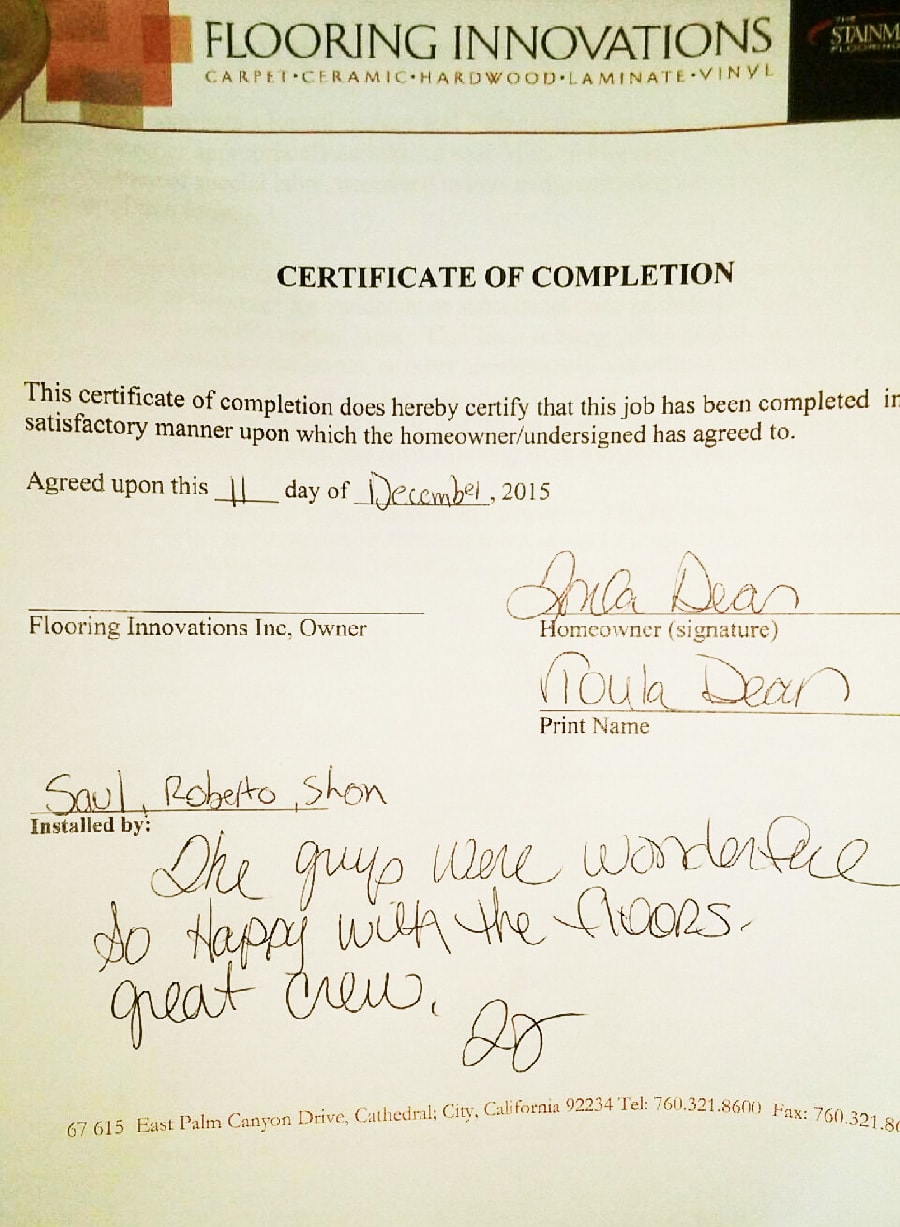 FLOORING INNOVATIONS
CARPET•CERAMIC•HARDWOOD•LAMINATE•VINYL
THE
STAINM
FLOORING
CERTIFICATE OF COMPLETION
This certificate of completion does hereby certify that this job has been completed in
satisfactory manner upon which the homeowner/undersigned has agreed to.
Agreed upon this 11 day of December, 2015
Toula Dean
Flooring Innovations Inc, Owner
Homeowner (signature)
Toula Dean
Print Name
Saul, Roberto, Shon
Installed by:
The guys were wonderful
So Happy with the floors.
great crew.
67 615 East Palm Canyon Drive, Cathedral; City, California 92234 Tel: 760.321.8600 Fax: 760.321.86